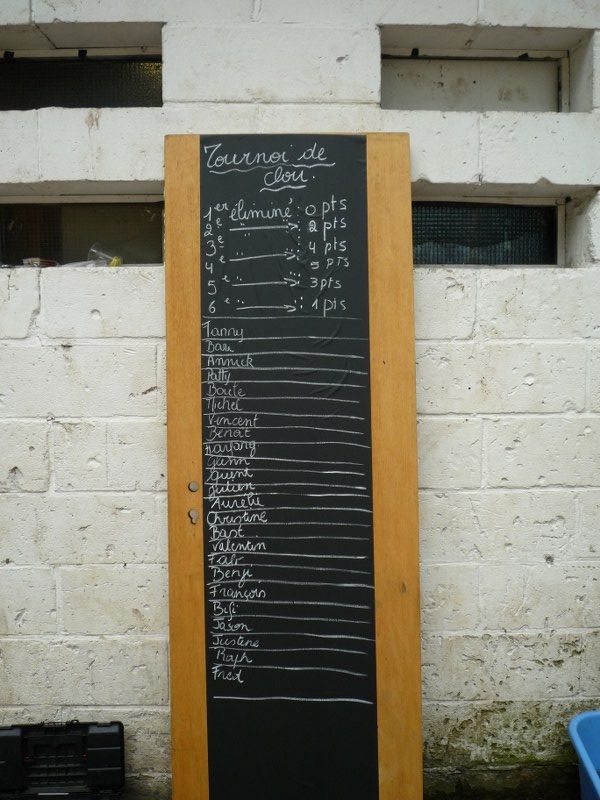 Tournoi de
clou.
1er éliminé : 0 pts
2e " " : 2 pts
3e
4e " " : 4 pts
5 pts
5e " " : 3 pts
6e " " : 1 pts
Annick
Patty
Boule
Michel
Vincent
Benoit
Julien
Aurélie
Christine
Bast
Valentin
Benji
François
Jason
Justine
Raph
Fred